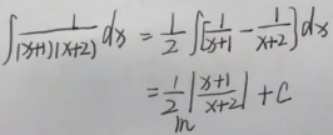 ∫ 1/((x+1)(x+2)) dx = 1/2 ∫[1/(x+1) - 1/(x+2)] dx
= 1/2 |(x+1)/(x+2)| + C
ln